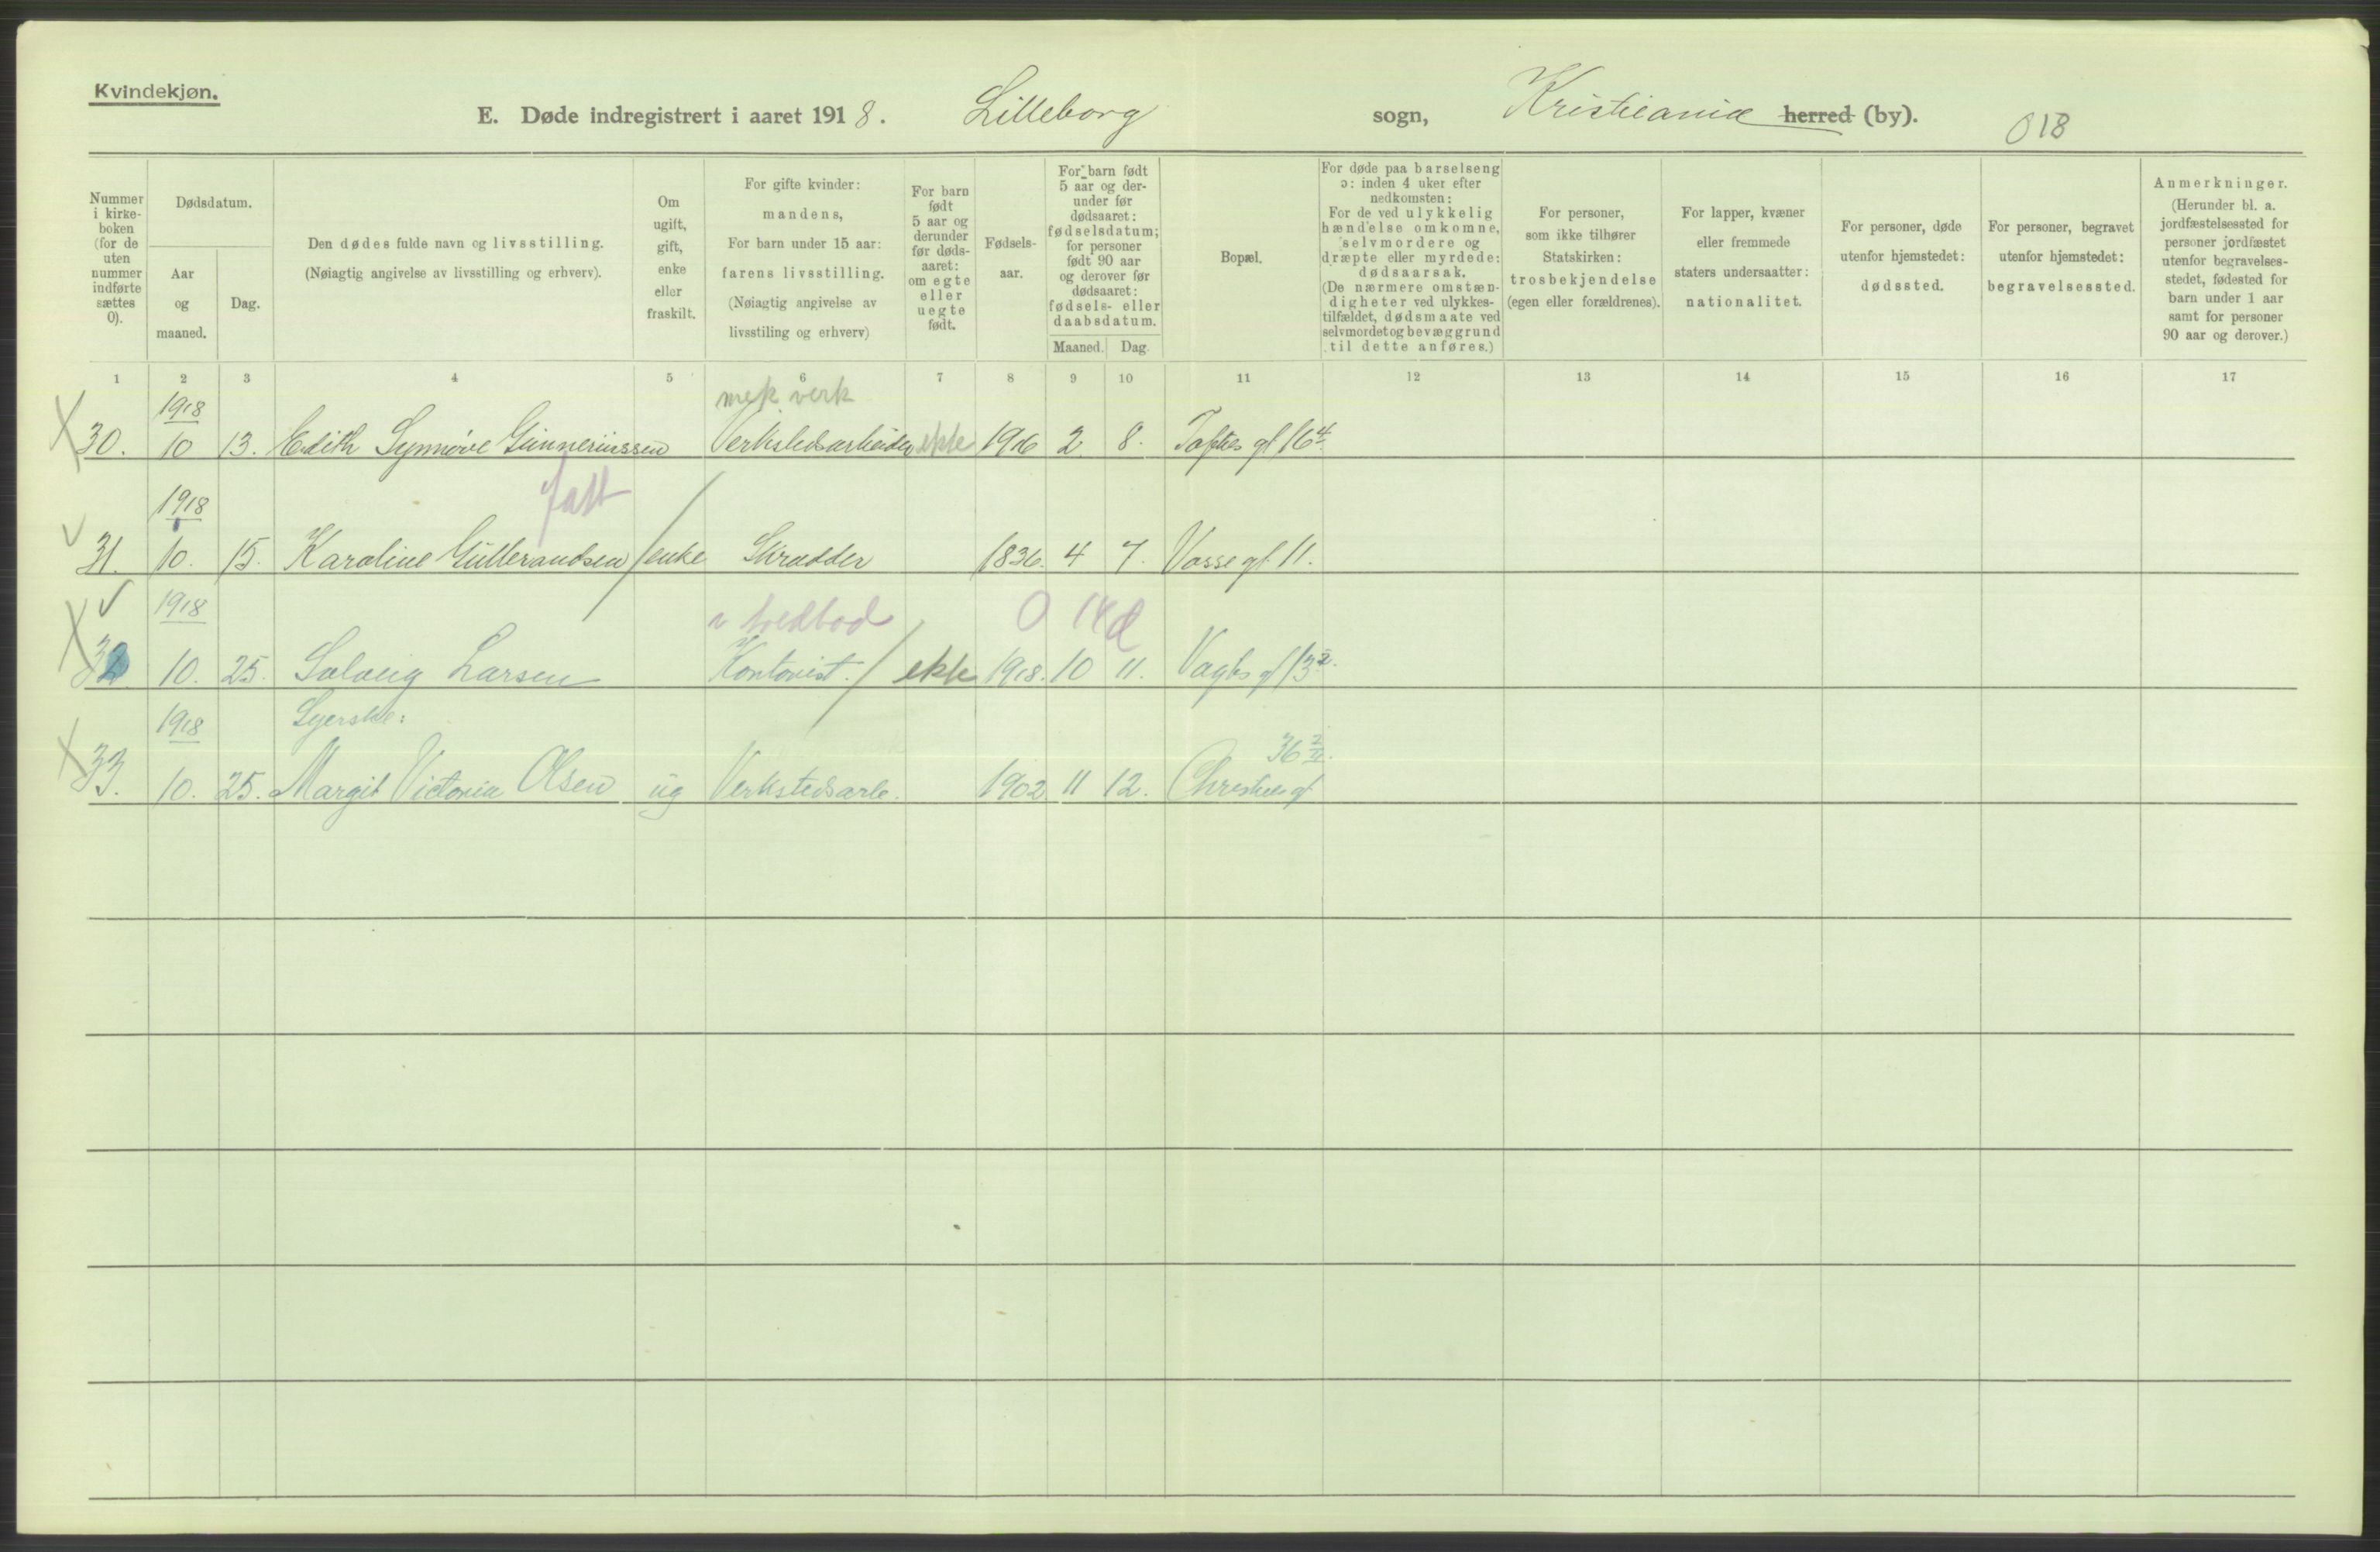 Kvindekjøn.
E. Døde indregistrert i aaret 1918. Lilleborg sogn, Kristiania herred (by). 018
Nummer i kirke- boken (for de uten nummer indførte sættes 0).
Dødsdatum.
Aar og maaned.
Dag.
Den dødes fulde navn og livsstilling.
(Nøiagtig angivelse av livsstilling og erhverv).
Om ugift, gift, enke eller fraskilt.
For gifte kvinder: mandens,
For barn under 15 aar: farens livsstilling.
(Nøiagtig angivelse av livsstiling og erhverv)
For barn født 5 aar og derunder før døds- aaret: om egte eller uegte født.
Fødsels- aar.
For barn født 5 aar og der- under før dødsaaret: fødselsdatum; for personer født 90 aar og derover før dødsaaret: fødsels- eller daabsdatum.
Maaned. Dag.
Bopæl.
For døde paa barselseng ɔ: inden 4 uker efter nedkomsten:
For de ved ulykkelig hændelse omkomne, selvmordere og dræpte eller myrdede: dødsaarsak.
(De nærmere omstæn- digheter ved ulykkes- tilfældet, dødsmaate ved selvmordet og bevæggrund til dette anføres.)
For personer, som ikke tilhører Statskirken: trosbekjendelse (egen eller forældrenes).
For lapper, kvæner eller fremmede staters undersaatter: nationalitet.
For personer, døde utenfor hjemstedet: dødssted.
For personer, begravet utenfor hjemstedet: begravelsessted.
Anmerkninger.
(Herunder bl. a. jordfæstelsessted for personer jordfæstet utenfor begravelses- stedet, fødested for barn under 1 aar samt for personer 90 aar og derover.)
1 2 3 4 5 6 7 8 9 10 11 12 13 14 15 16 17
1918 mek verk
30. 10 13. Edith Synnøve Gunneriussen Verkstedsarbeider ekte 1916 2 8. Toftes gt 16 4
1918 fatt
31. 10. 15. Karoline Gulbrandsen enke Skrædder 1836. 4 7. Vosse gt. 11.
1918 v vedbod 0 14 d
32 10. 25. Solveig Larsen Kontorist. ekte 1918. 10 11. Vogts gt 13 2.
1918 Syerske: 36 2/II.
33. 10. 25. Margit Victoria Olsen ug Verkstedsarb. 1902 11 12. Christies gt